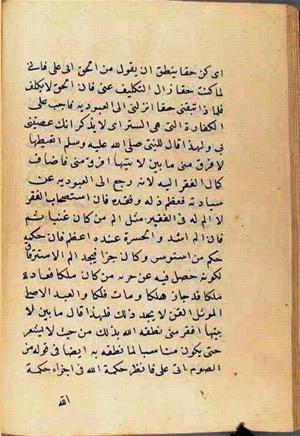 اى كن حقا ينطق ان يقول من الحق انى على فانى
لما كنت حقا زال التكليف عنى فان الحق لا يكلف
فلما ذا تبقنى حقا انزلنى الى العبودية فاجب على
الكفارة التى هى الستر اى لا يذكر انك عصيتنى
بى ولهذا قال للنبى صلى الله عليه وسلم
لا فرق منى ما بين لا بتيها افرق منى فاضاف
كمال الفقر اليه لانه رجع الى العبودية عن
سيادته فعظم ذله وفقده فان استصحاب الفقر
لا الم له فى الفقير مثل الم من كان غنيا ثم
فان الم اشد والحسرة عنده اعظم فان حكمه
حكم من استوسر وكان حرا فيجد الم الاسترقاق
لكونه حصل فيه عن حرية من كان ملكا فعاد
ملكا قد جاز هلكا ومات فلكا والعبد الاصلى
المؤثل القن لا يجد ذلك فلهذا قال ما بين لا
بتيها افقر منى نطقه الله بذلك من حيث لا يشعر
حتى يكون مناسبا لما نطقه به ايضا فى قوله من
الصوم انى على فانظر حكمة الله فى اجزاء حكمة
الله